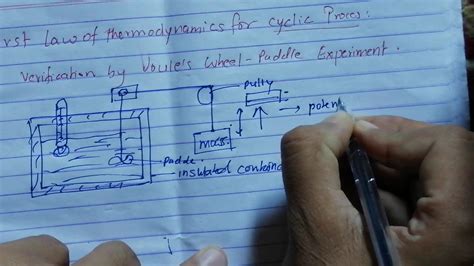 rst Law of thermodynamics for cyclic Proces:
verification by Joule's Wheel-Paddle Experiment.
pully
→ poten
mass
Paddle
insulated contain